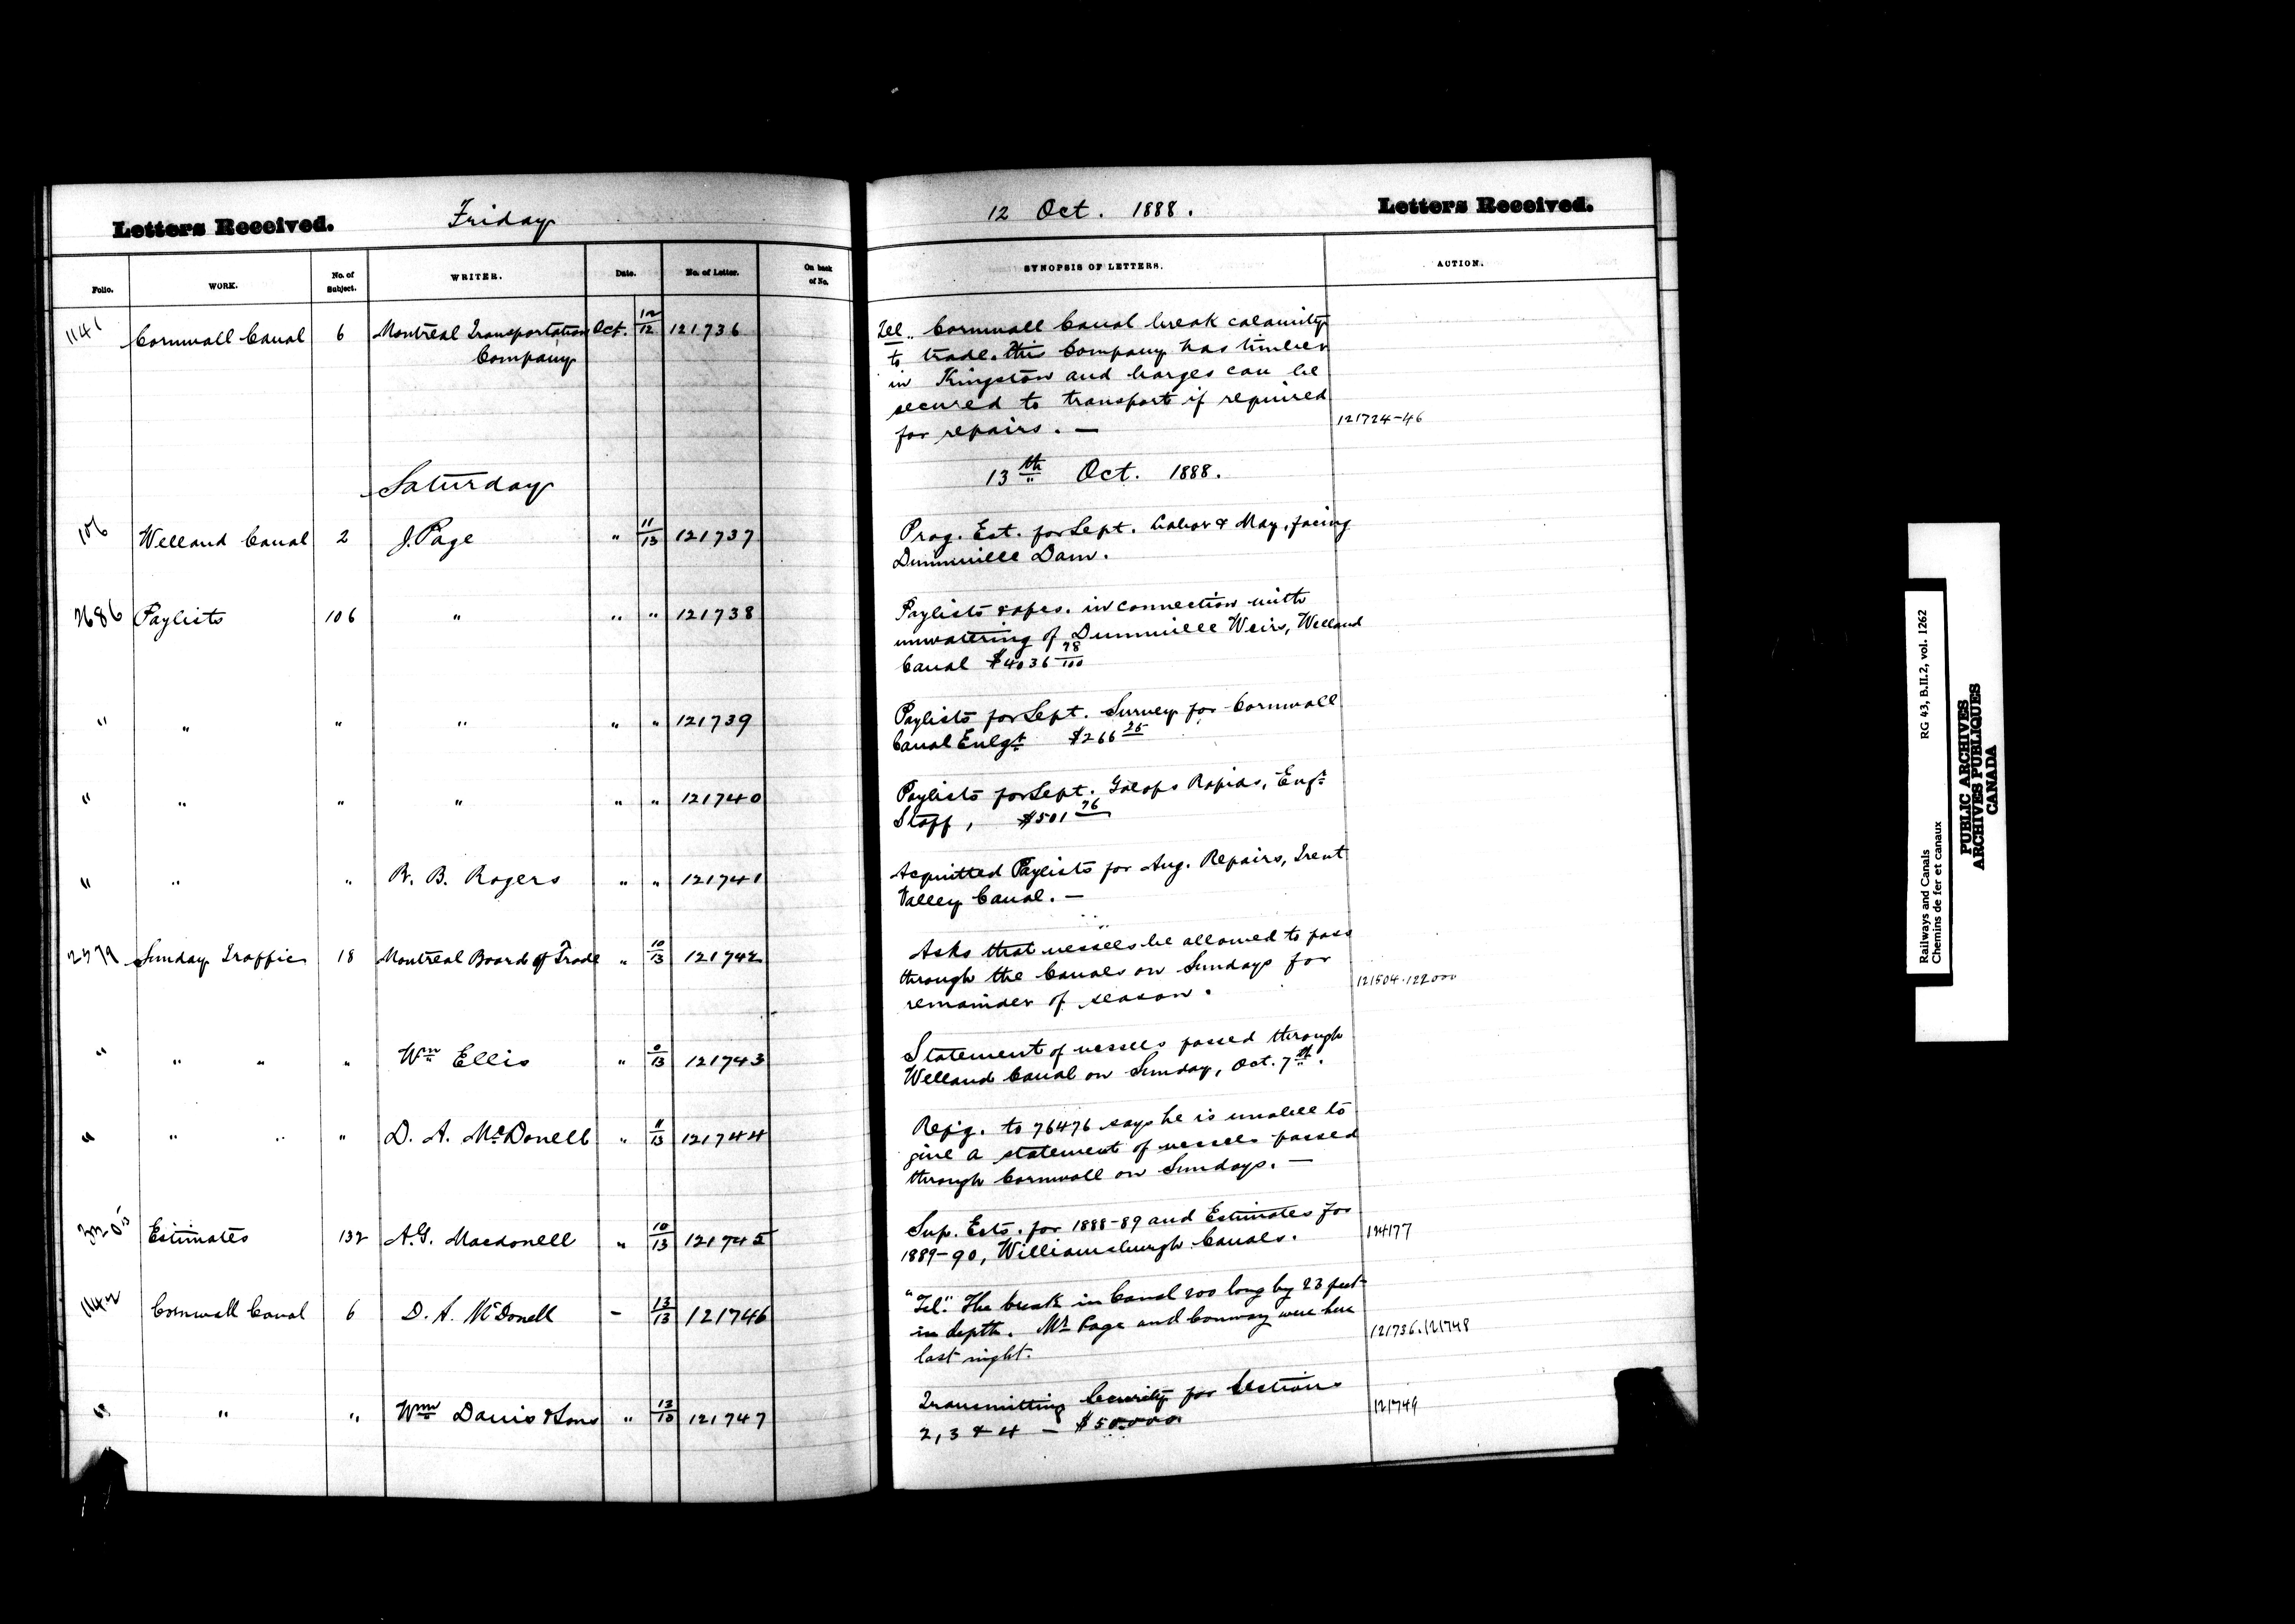 Letters Received.
Friday
12 Oct. 1888.
Letters Received.
Folio. WORK. No. of Subject. WRITER. Date. No. of Letter. On back of No. SYNOPSIS OF LETTERS. ACTION.
1141 Cornwall Canal 6 Montreal Transportation Oct. 12/12 121736
Company
Tel. Cornwall Canal break calamity
to trade. This Company has timber
in Kingston and barges can be
secured to transport if required
for repairs. —
121724-46
Saturday
13th Oct. 1888.
106 Welland Canal 2 J. Page " 11/13 121737
Prog. Est. for Sept. Labor & May, facing
Dunnville Dam.
2686 Paylists 106 " " " 121738
Paylists & apcs. in connection with
unwatering of Dunnville Weirs, Welland
Canal $4036 78/100
" " " " " " 121739
Paylists for Sept. Survey for Cornwall
Canal Enlgt $266 25
" " " " " " 121740
Paylists for Sept. Galops Rapids, Engr
Staff, $501 76
" " " R. B. Rogers " " 121741
Acquitted Paylists for Aug. Repairs, Trent
Valley Canal. —
Sunday Traffic 18 Montreal Board of Trade " 10/13 121742
Asks that vessels be allowed to pass
through the Canals on Sundays for
remainder of season.
121504.122000
" " " " Wm Ellis " 121743
Statement of vessels passed through
Welland Canal on Sunday, Oct. 7th.
" " " " D. A. McDonell " 11/13 121744
Refg. to 76476 says he is unable to
give a statement of vessels passed
through Cornwall on Sundays. —
3205 Estimates 132 A.G. Macdonell " 10/13 121745
Sup. Ests. for 1888-89 and Estimates for
1889-90, Williamsburgh Canals.
124177
1142 Cornwall Canal 6 D. A. McDonell - 13/13 121746
"Tel." The break in Canal 200 long by 23 feet
in depth. Mr Page and Conway were here
last night.
121736.121748
" " " Wm Davis & Sons " 12/13 121747
Transmitting Security for Sections
2, 3 & 4 — $50.000
121749
Railways and Canals
Chemins de fer et canaux
RG 43, B.II.2, vol. 1262
PUBLIC ARCHIVES
ARCHIVES PUBLIQUES
CANADA